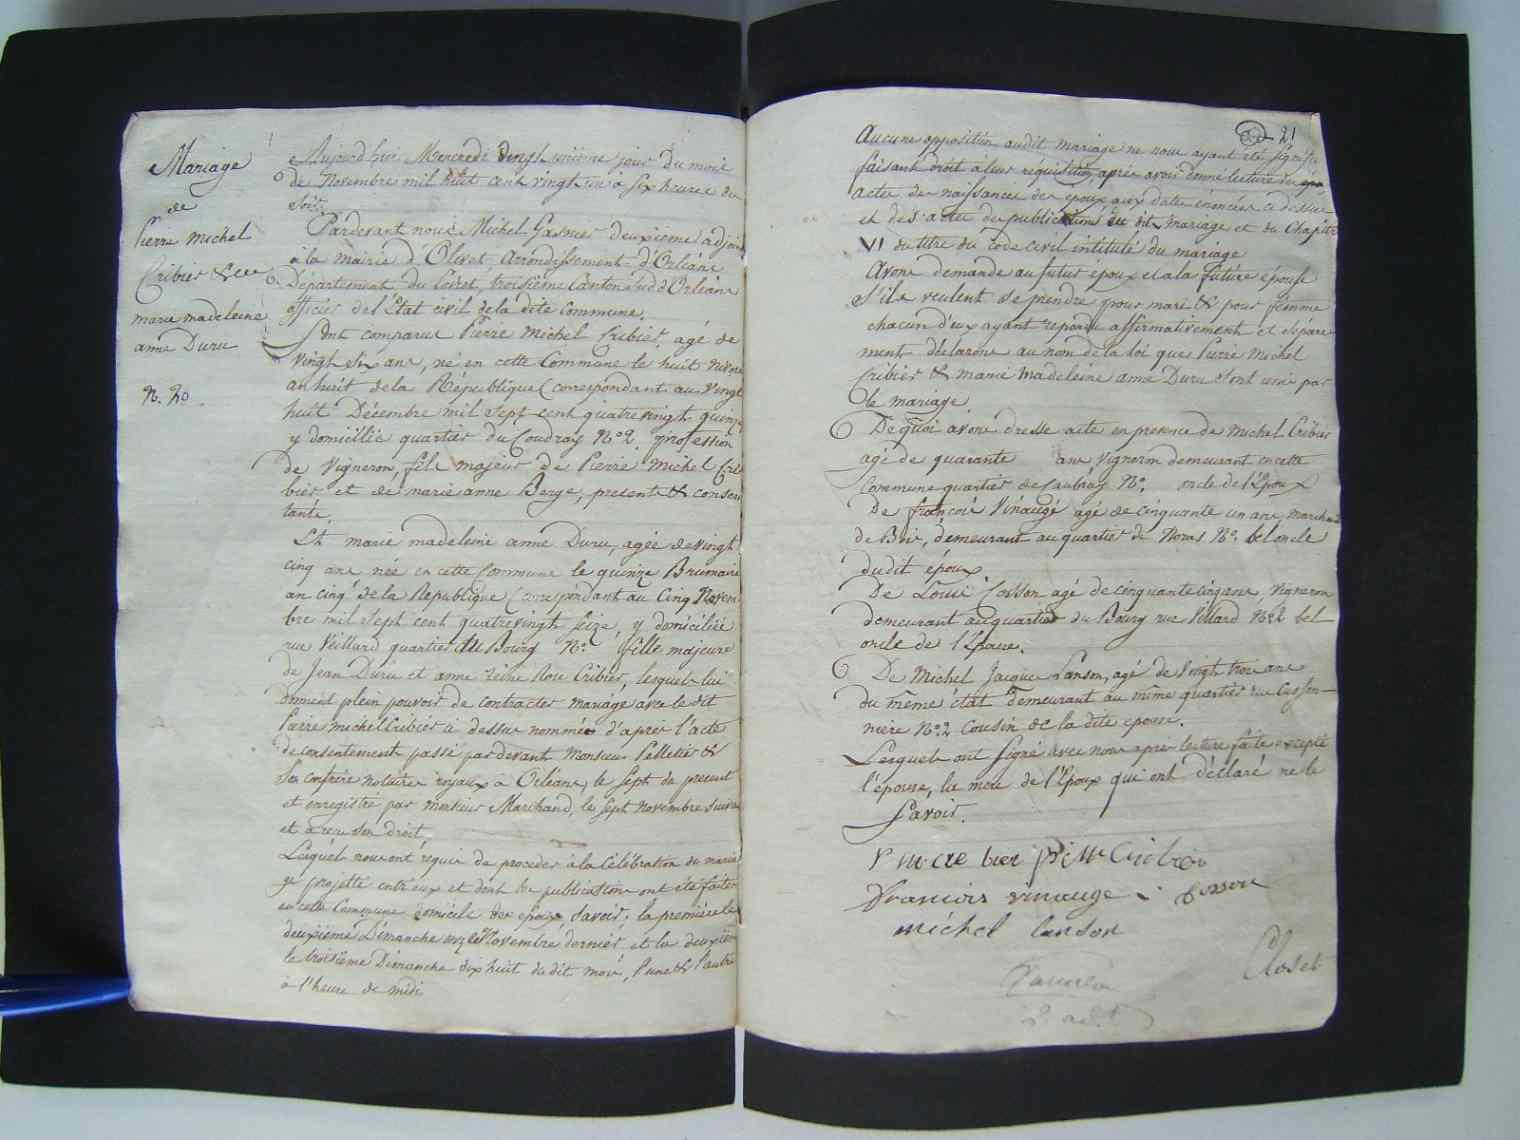 Mariage
de
Pierre michel
Cribier & ec
marie madeleine
anne Duru
N. 20
Aujourd'hui Mercredi vingt unième jour du mois
de Novembre mil huit cent vingt un à six heures du
soir.
Pardevant nous Michel Gasnier deuxième adjoint
à la mairie d'Olivet arrondissement d'Orléans
Département du Loiret, troisième Canton Sud d'Orléans
officier de l'Etat civil de la dite Commune.
Sont comparus Pierre Michel Cribier, agé de
vingt six ans, né en cette Commune le huit nivose
an huit de la République (correspondant au vingt
huit Décembre mil sept cent quatrevingt quinze
y domicilié quartier du Coudray No 2 profession
de vigneron, fils majeur de Pierre Michel Cri
bier et de marie anne Berge, presents & consen
tants
Et marie madeleine anne Duru, agée de vingt
cinq ans née en cette Commune le quinze Brumaire
an cinq de la République (correspondant au Cinq Novem
bre mil sept cent quatrevingt seize, y domiciliée
rue Veillard quartier du Bourg No. fille majeure
de Jean Duru et anne reine Rose Cribier, lesquels lui
donnent plein pouvoir de contracter mariage avec le dit
Pierre michel Cribier ci dessus nommés d'après l'acte
de consentement passé pardevant Monsieur Pelletier &
son confrère notaires royaux à Orléans, le sept du present
et enregistré par monsieur Marchand, le sept novembre suivant
et a reçu son droit
Lesquels nous ont requis de proceder à la Célébration du mariage
projetté entr'eux et dont les publications ont été faites
en cette Commune domicile des epoux, Savoir; la première le
deuxième Dimanche onze Novembre dernier et la deuxième
le troisième Dimanche dix huit du dit mois, l'une & l'autre
à l'heure de midi
21
Aucune opposition audit mariage ne nous ayant été signifiée
faisant droit à leur réquisition, après avoir donné lecture des
actes de naissances des epoux aux dates enoncées ci dessus
et des actes de publications du dit mariage et du Chapitre
VI du titre du Code civil intitulé du mariage
Avons demandé au futur époux et a la future épouse
s'ils veulent se prendre pour mari & pour femme
chacun d'eux ayant repondu affirmativement et séparé
ment déclarons au nom de la loi que Pierre Michel
Cribier & marie madeleine anne Duru sont unis par
le mariage
De quoi avons dressé acte en presence de Michel Cribier
agé de quarante ans, vigneron demeurant en cette
Commune quartier de Caubray No. oncle de l'Epoux
De françois Vinauge agé de cinquante un ans, marchand
de Bois, demeurant au quartier de Noras No. bel oncle
dudit époux
De Louis Cosson agé de cinquante cinq ans, vigneron
demeurant au quartier du Bourg rue Villard No 2 bel
oncle de l'Epouse.
De Michel Jacques Lanson, agé de vingt trois ans
du même état demeurant au même quartier rue Cusson
nière No 2 Cousin de la dite epouse.
Lesquels ont signé avec nous après lecture faite excepté
l'épouse, la mère de l'Epoux qui ont déclaré ne le
savoir.
P m cre bier pi Mr Cribier
francois vinauge cosson
michel lanson
Closet
Gasnier
2e adt